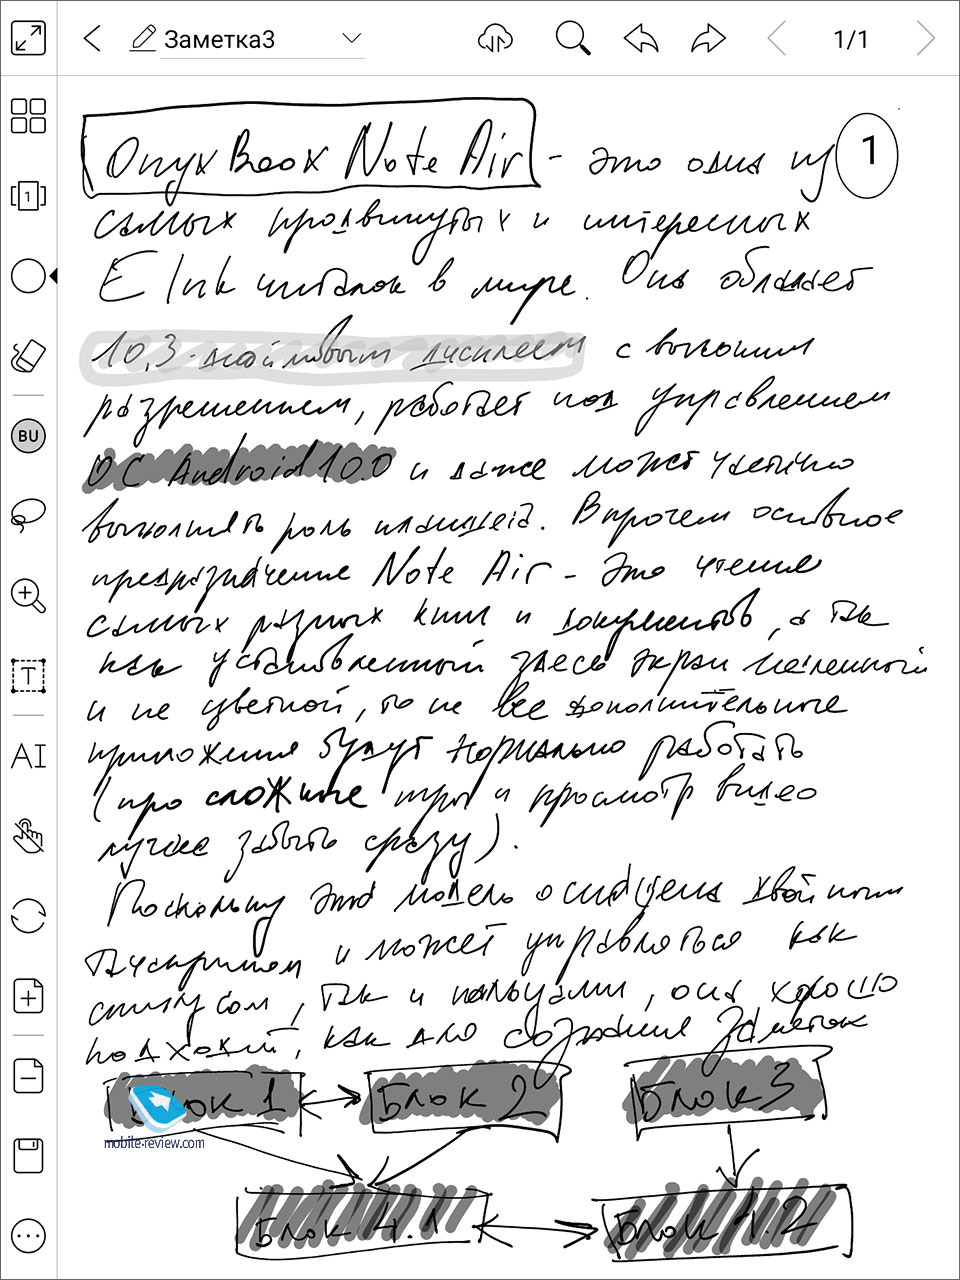 Заметка3
1/1
1
Onyx Boox Note Air - это одна из
1
самых продвинутых и интересных
E Ink читалок в мире. Она обладает
10,3-дюймовым дисплеем с высоким
разрешением, работает под управлением
ОС Android 10.0 и даже может частично
выполнять роль планшета. Впрочем основное
предназначение Note Air - это чтение
самых разных книг и документов, а так
как установленный здесь экран медленный
и не цветной, то не все дополнительные
приложения будут нормально работать
(про сложные игры и просмотр видео
лучше забыть сразу).
Поскольку эта модель оснащена двойным
тачскрином и может управляться как
стилусом, так и пальцами, она хорошо
подходит, как для создания заметок
BU
T
AI
Блок 1
Блок 2
Блок 3
mobile-review.com
Блок 4.1
Блок 4.2